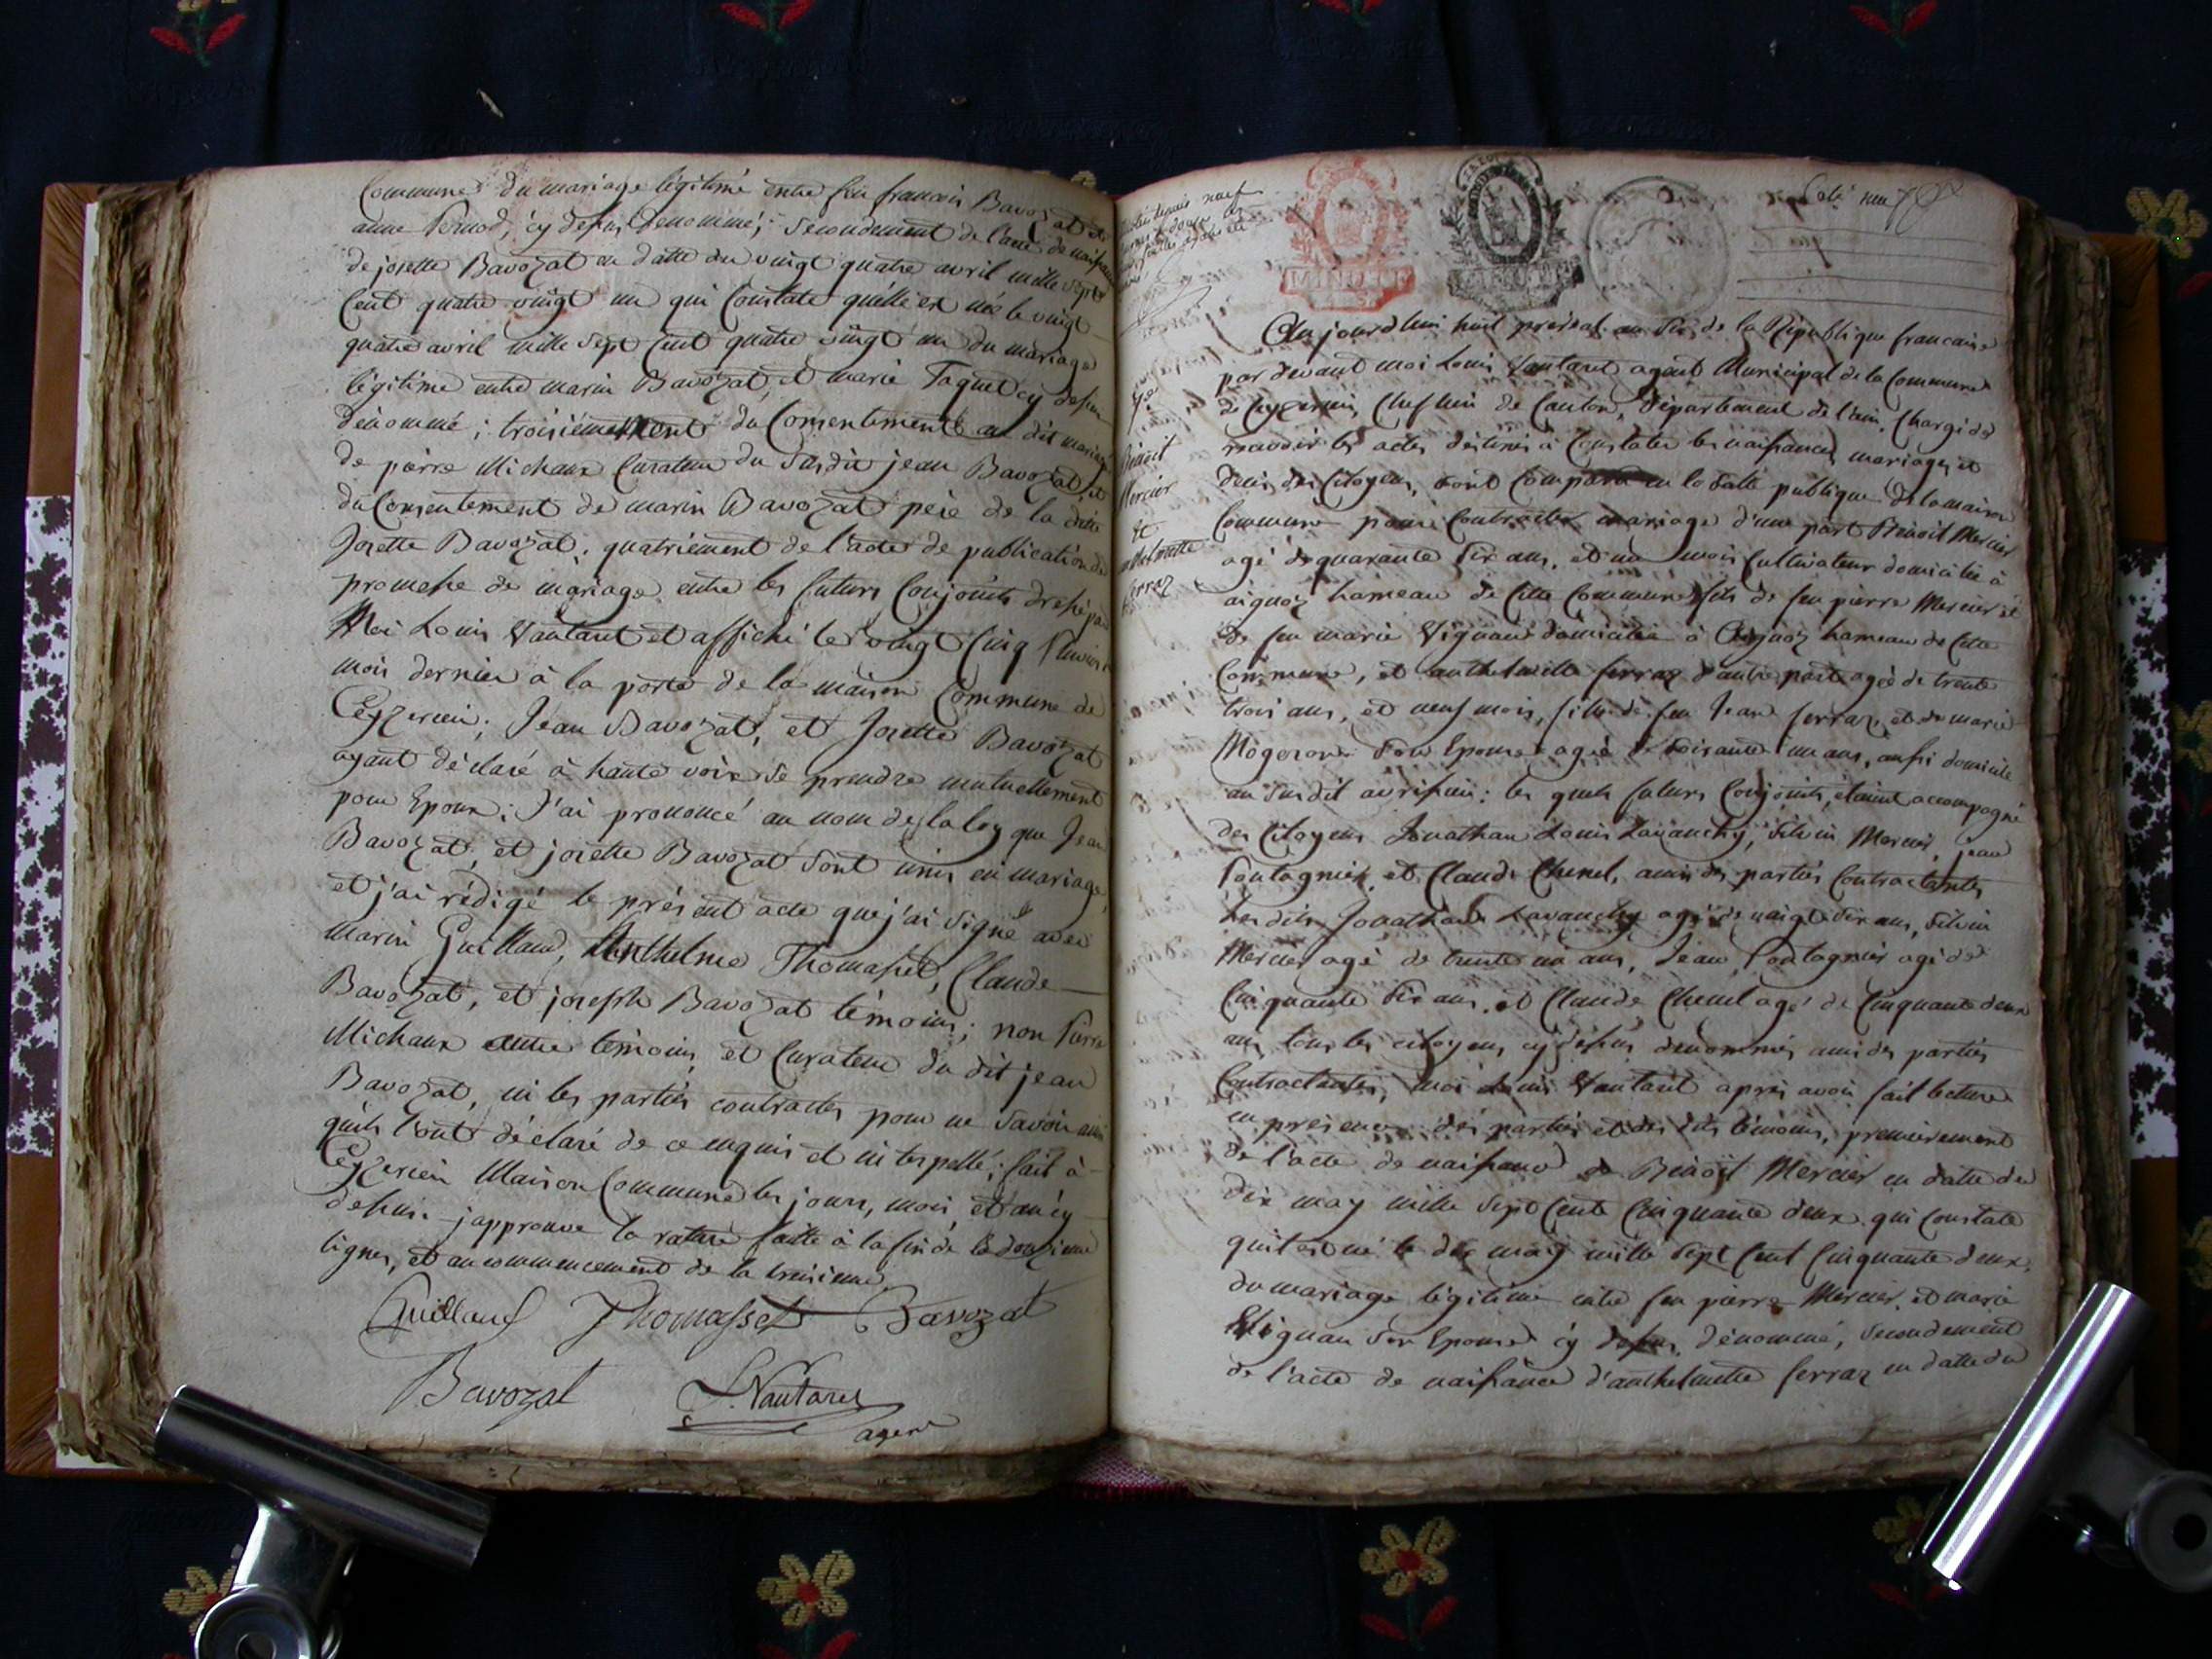 Commune du mariage légitimé entre feu francois Bavozat et
anne Pernod, cy dessus denommé; secondement de l'acte de naissance
de josette Bavozat en datte du vingt quatre avril mille sept
Cent quatre vingt un qui Constate quélle est née le vingt
quatre avril mille sept cent quatre vingt un du mariage
légitime entre marin Bavozat, et marie Taquet cy dessus
dénommé; troisiémement du Consentement au dit mariage
de pierre Michaux Curateur du susdit jean Bavozat, et
du Consentement de marin Bavozat pere de la dite
Josette Bavozat. quatriement de l'acte de publication de
promesse de mariage entre les futurs Conjoints dressé par
Moi Louis Vautaret et affiché le vingt Cinq
mois dernier à la porte de la maison Commune de
Ceyzerieu; Jean Bavozat, et Josette Bavozat
ayant déclaré à haute voix se prendre mutuellement
pour Epoux; J'ai prononcé au nom de la loy que Jean
Bavozat, et josette Bavozat sont unis en mariage,
et j'ai rédigé le présent acte que j'ai signé avec
marin Guilland, Anthelme Thomasset, Claude
Bavozat, et joseph Bavozat témoins; non Pierre
Michaux autre témoins, et Curateur du dit jean
Bavozat, ni les parties contractes pour ne savoir ainsi
quils l'ont déclaré de ce enquis et interpellé; fait à
Ceyzerieu Maison Commune les jours, mois, et an cy
dessus. japprouve la rature faitte à la fin de la douzieme
lignes, et au commencement de la treisieme
Guilland Thomasset Bavozat
Bavozat L. Vautaret
agent
Benoit
Mercier
et
anthelmette
ferraz
Aujourdhui huit preréal an six de la République francaise
par devant moi Louis Vautaret agent Municipal de la Commune
de Ceyzerieu, Chef lieu de Canton, département de l'ain, Chargé de
recevoir les actes destinés à Constater les naissances mariages et
decès des Citoyens, sont Comparu en la salle publique de la maison
Commune pour Contracter mariage d'une part Benoit Mercier
agé de quarante six ans, et un mois Cultivateur domicilié à
aignoz hameau de Cette Commune fils de feu pierre Mercier et
de feu marie Vignan domiciliée à Aignoz hameau de Cette
Commune, et anthelmette ferraz d'autre part agée de trente
trois ans, et neuf mois, fille de feu Jean ferraz, et de marie
Mogeron son Epouse agée de soisante un ans, aussi domicile
au susdit: les quels futurs Conjoints, étaient accompagné
des Citoyens Jonathan Louis Lavanchy, Silvin Mercier, jean
Pontagnier, et Claude Chenel, amis des parties Contractantes
Lesdits Jonathan Lavanchy agé de vingt six ans, Silvin
Mercier agé de trente un ans, Jean Pontagnier agé de
Cinquante six ans, et Claude Chenel agé de Cinquante deux
ans tous les citoyens cy dessus denommés amis des parties
Contractantes; moi Louis Vautaret après avoir fait lecture
en presence des parties et des dits témoins, premierement
de l'acte de naissance de Benoit Mercier en datte du
dix may mille sept Cent Cinquante deux qui constate
quil est né le dix may mille sept Cent Cinquante deux,
du mariage légitime entre feu pierre Mercier, et marie
Vignan son Epouse cy dessus dénommé, secondement
de l'acte de naissance d'anthelmette ferraz en datte du